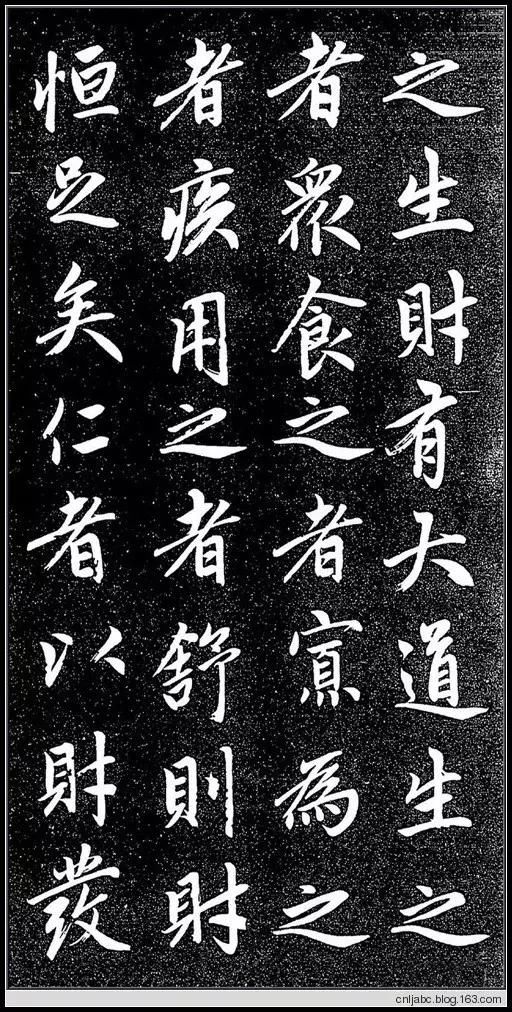 之生財有大道生之
者眾食之者寡為之
者疾用之者舒則財
恒足矣仁者以財發
cnljabc.blog.163.com